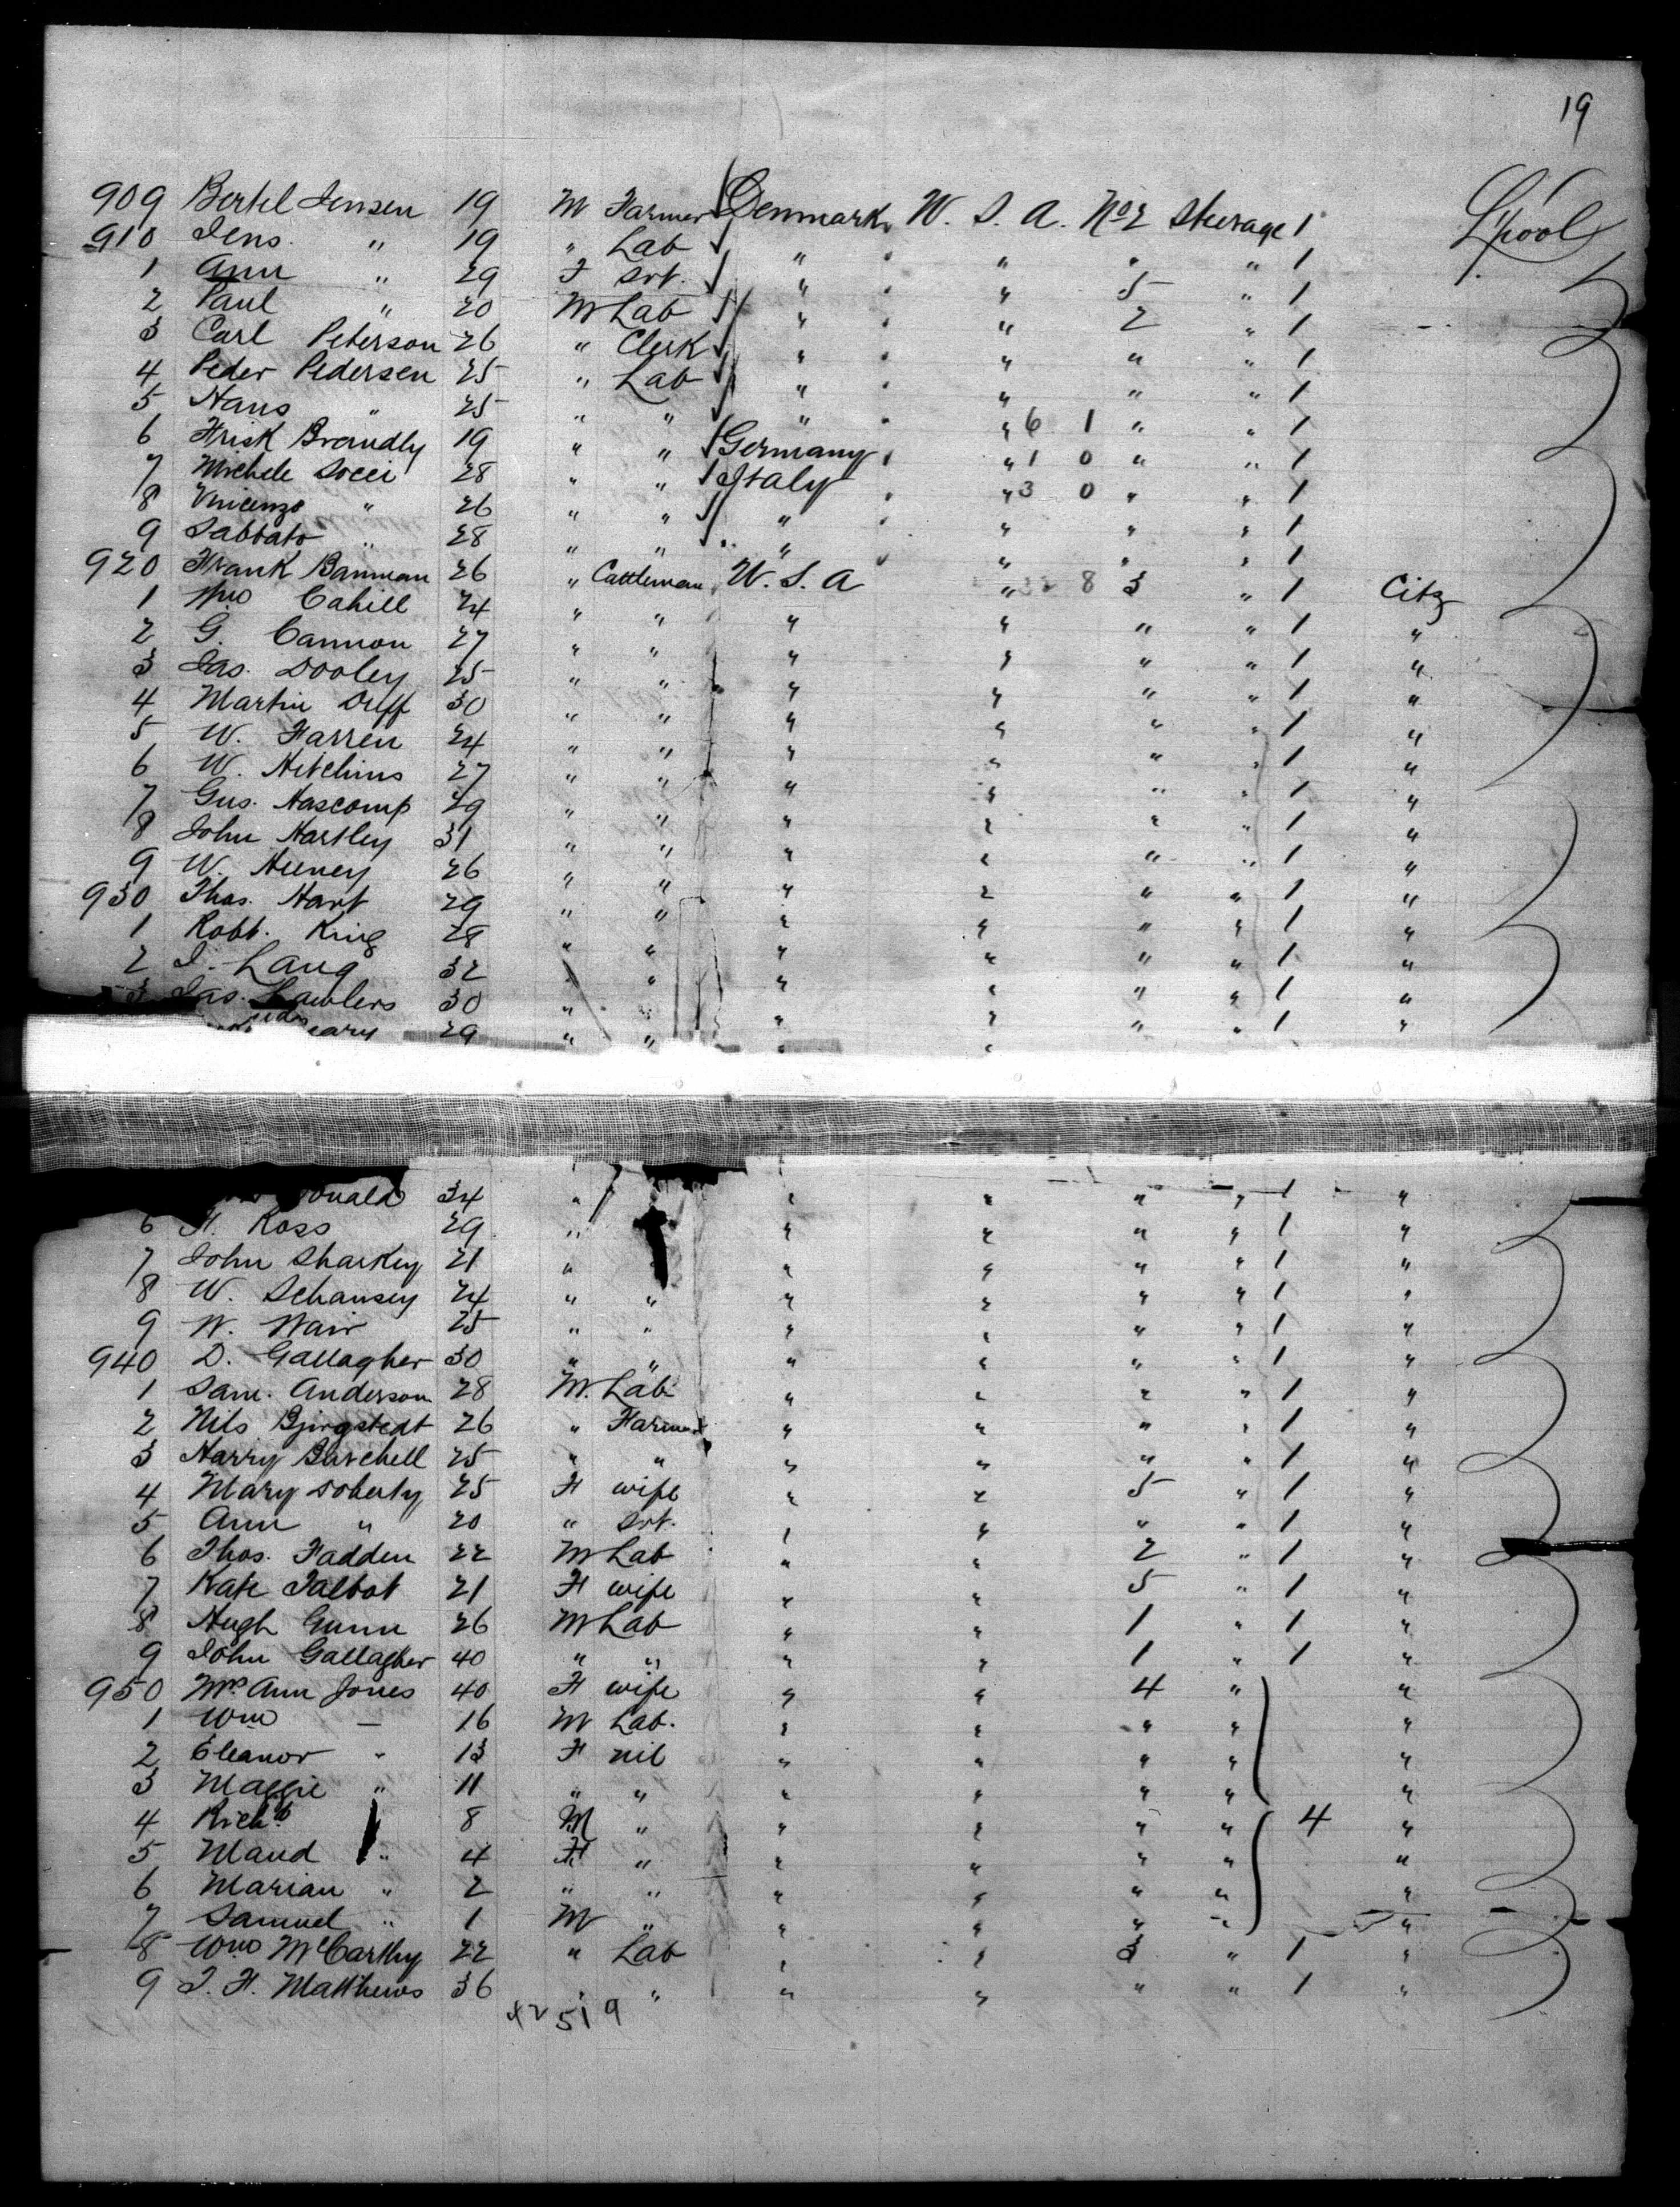 19
909 Bertel Jensen 19 M Farmer Denmark U. S. A. No 2 Steerage 1 L'pool
910 Jens " 19 " Lab " " " " 1
1 Ann " 29 F Svt. " " 5 " 1
2 Paul " 20 M Lab " " 2 " 1
3 Carl Peterson 26 " Clerk " " " " 1
4 Peder Pedersen 25 " Lab " " " " 1
5 Hans " 25 " " " " " " 1
6 Frisk Brandly 19 " " Germany " 6 1 " " 1
7 Michele Socci 28 " " Italy " 1 0 " " 1
8 Vincenzo " 26 " " " " 3 0 " " 1
9 Sabbato " 28 " " " " " " 1
920 Frank Banman 26 " Cattleman U. S. A " 8 3 " 1 Citz
1 Wm Cahill 24 " " " " " " 1 "
2 G. Cannon 27 " " " " " " 1 "
3 Jas. Dooley 25 " " " " " " 1 "
4 Martin Duff 30 " " " " " " 1 "
5 W. Farren 24 " " " " " " 1 "
6 W. Hitchins 27 " " " " " " 1 "
7 Gus. Hascomp 29 " " " " " " 1 "
8 John Hartley 31 " " " " " " 1 "
9 W. Heeney 26 " " " " " " 1 "
930 Thos. Hart 29 " " " " " " 1 "
1 Robt. King 28 " " " " " " 1 "
2 J. Lang 32 " " " " " " 1 "
3 Jas. Lawlers 30 " " " " " " 1 "
eary 29 " " " "
onald 34 " " " " " 1 "
6 H. Ross 29 " " " " " 1 "
7 John Sharkey 21 " " " " " 1 "
8 W. Schansey 24 " " " " " " 1 "
9 W. Wair 25 " " " " " " 1 "
940 D. Gallagher 30 " " " " " " 1 "
1 Sam. Anderson 28 M. Lab " " " " 1 "
2 Nils Bjorgstedt 26 " Farmer " " " " 1 "
3 Harry Burchell 25 " " " " " " 1 "
4 Mary Doherty 25 F wife " " 5 " 1 "
5 Ann " 20 " Svt. " " " " 1 "
6 Thos. Fadden 22 M Lab " " 2 " 1 "
7 Kate Talbot 21 F wife " " 5 " 1 "
8 Hugh Gunn 26 M Lab " " 1 " 1 "
9 John Gallagher 40 " " " " 1 " 1 "
950 Mrs Ann Jones 40 F wife " " 4 " "
1 Wm — 16 M Lab. " " " " "
2 Eleanor " 13 F nil " " " " "
3 Maggie " 11 " " " " " " "
4 Richd " 8 M " " " " " 4 "
5 Maud " 4 F " " " " " "
6 Marian " 2 " " " " " " "
7 Samuel " 1 M " " " " " "
8 Wm McCarthy 22 " Lab " " 3 " 1 "
9 J. H. Matthews 36 " " " " " " 1 "
42519